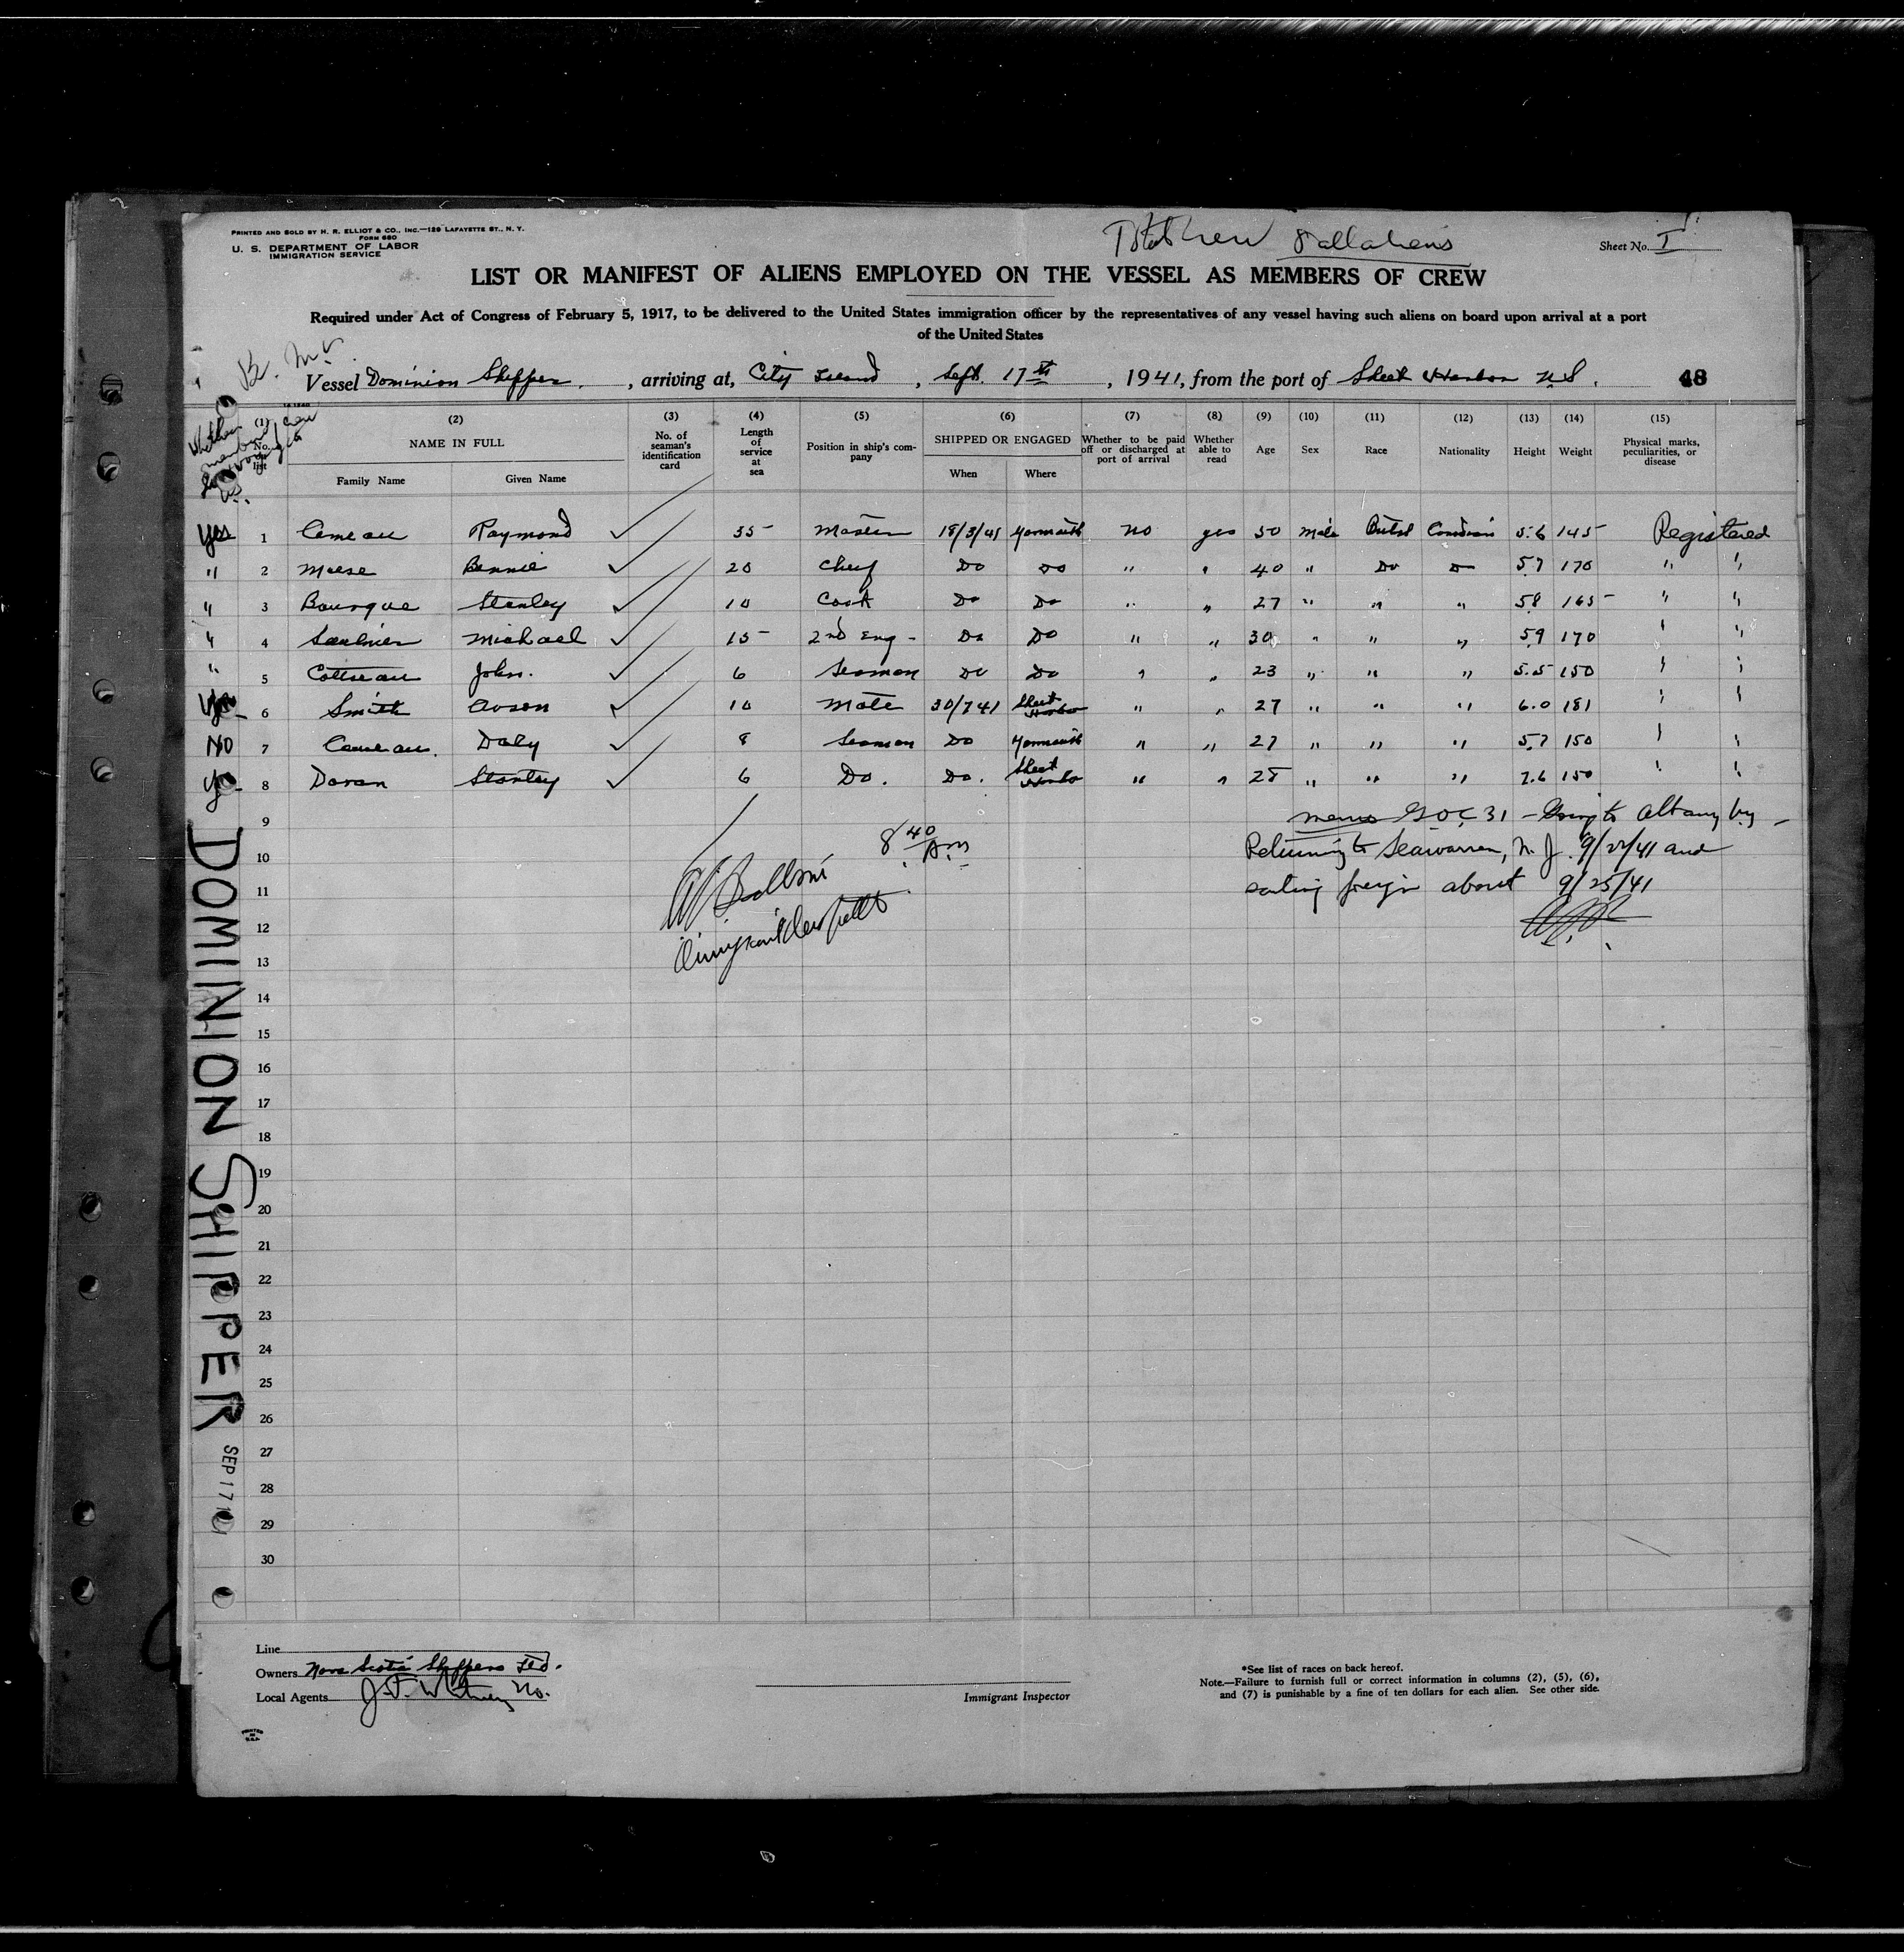 PRINTED AND SOLD BY H. R. ELLIOT & CO., INC.—129 LAFAYETTE ST., N. Y.
FORM 680
U. S. DEPARTMENT OF LABOR
IMMIGRATION SERVICE
Total crew 8 all aliens
Sheet No. I
LIST OR MANIFEST OF ALIENS EMPLOYED ON THE VESSEL AS MEMBERS OF CREW
Required under Act of Congress of February 5, 1917, to be delivered to the United States immigration officer by the representatives of any vessel having such aliens on board upon arrival at a port
of the United States
Br. M.V.
Vessel Dominion Shipper, arriving at, City Island, Sept. 17th, 1941, from the port of Sheet Harbor N.S. 48
(1) No. on list
(2) NAME IN FULL Family Name Given Name
(3) No. of seaman's identification card
(4) Length of service at sea
(5) Position in ship's company
(6) SHIPPED OR ENGAGED When Where
(7) Whether to be paid off or discharged at port of arrival
(8) Whether able to read
(9) Age
(10) Sex
(11) Race
(12) Nationality
(13) Height
(14) Weight
(15) Physical marks, peculiarities, or disease
Yes 1 Comeau Raymond 35 Master 18/3/41 Yarmouth no yes 50 Male Canadian 5.6 145 Registered
" 2 Bennie 20 Chef Do Do " " 40 " Do Do 5.7 170 " "
" 3 Bourque Stanley 10 Cook Do Do " " 27 " " " 5.8 165 " "
" 4 Saulnier Michael 15 2nd Eng - Do Do " " 30 " " " 5.9 170 " "
" 5 John. 6 Seaman Do Do " " 23 " " " 5.5 150 " "
Yes 6 Smith 10 Mate 30/7/41 Sheet Harbor " " 27 " " " 6.0 181 " "
No 7 Comeau. Daly 8 Seaman Do Yarmouth " " 27 " " " 5.7 150 " "
Yes 8 Doran Stanley 6 Do. Do. Sheet Harbor " " 25 " " " 150 " "
9
10
11
12
13
14
15
16
17
18
19
20
21
22
23
24
25
26
27
28
29
30
8 40 AM
Going to Albany
Returning to Seawarren, N. J. 9/22/41 and
sailing foreign about 9/25/41
DOMINION SHIPPER
SEP 17
Line
Owners Nova Scotia Shippers Ltd.
Local Agents J. F. Whitney Co.
Immigrant Inspector
*See list of races on back hereof.
Note.—Failure to furnish full or correct information in columns (2), (5), (6),
and (7) is punishable by a fine of ten dollars for each alien. See other side.
PRINTED
IN
U.S.A.